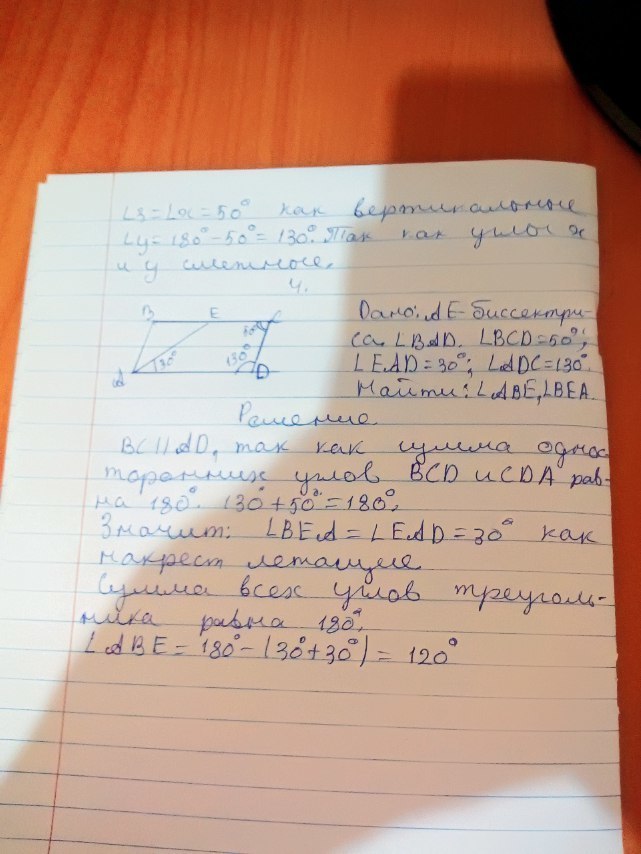 ∠3=∠x=50° как вертикальные
∠y=180°-50°=130°. Так как углы x
и y смежные.
4.
B E C
50°
130° 30°
A D
Дано: AE-биссектри-
са ∠BAD. ∠BCD=50°;
∠EAD=30°; ∠ADC=130°.
Найти: ∠ABE, ∠BEA.
Решение.
BC||AD, так как сумма однос
торонних углов BCD и CDA рав-
на 180°. 130°+50°=180°.
Значит: ∠BEA=∠EAD=30° как
накрест летащие
Сумма всех углов треуголь-
ника равна 180°.
∠ABE=180°-(30°+30°)=120°